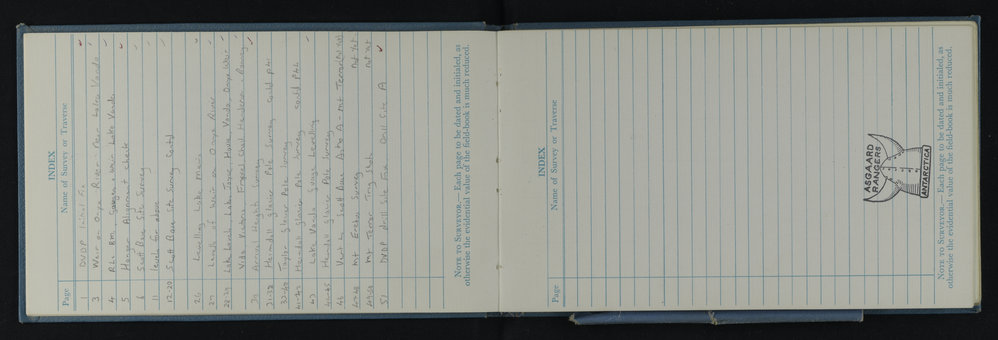 INDEX
Page Name of Survey or Traverse
1 DVDP Initial Fix
3 Weir on Onyx River - Near Lake Vanda
4 RLs BMs Gauges & Weir Lake Vanda
5 Hanger Alignment check
6 Scott Base Site Survey
11 levels for above
12-20 Scott Base Site Survey cont'd
26 Levelling Lake
27 Length of Weir on Onyx River
Lake Vanda, Onyx Weir
Vida
Arrival Heights Survey
31-32 Heimdall Glacier Pole Survey cont'd P41
Taylor Glacier Pole Survey
Heimdall Glacier Pole Survey cont'd
43 Lake Vanda Gauge Levelling
Heimdall Glacier Pole Survey
46 Scott Base Astro A - Mt Terror
47-48 Mt Erebus Survey
49-50 Mt Terror Trig Stn
51 DVDP drill site Fix Drill Site A
NOTE TO SURVEYOR.— Each page to be dated and initialed, as
otherwise the evidential value of the field-book is much reduced.
INDEX
Page Name of Survey or Traverse
ASGAARD
RANGERS
ANTARCTICA
NOTE TO SURVEYOR.— Each page to be dated and initialed, as
otherwise the evidential value of the field-book is much reduced.